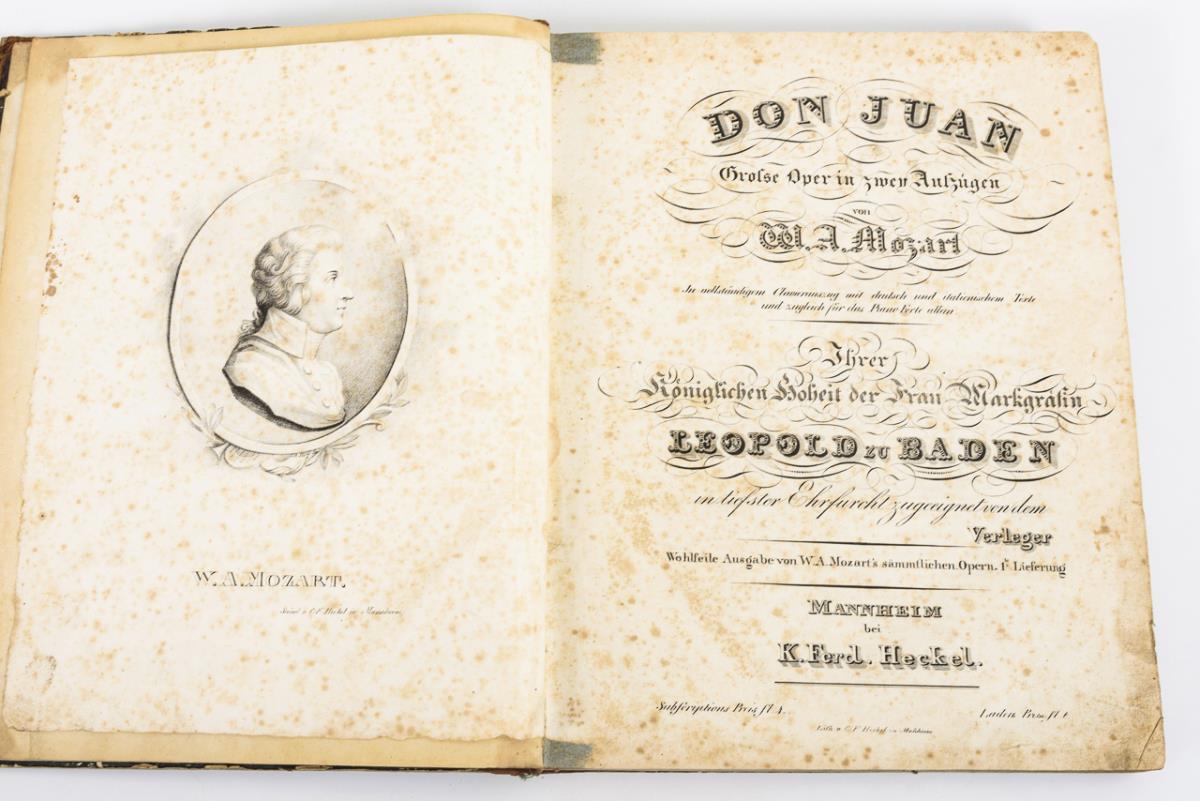 W. A. MOZART.
DON JUAN
Grosse Oper in zwey Aufzügen
von
W. A. Mozart
In vollständigem Clavierauszug mit deutsch und italienischem Texte
und zugleich für das Piano Forte allein
Ihrer
Königlichen Hoheit der Frau Markgräfin
LEOPOLD ZU BADEN
in tiefster Ehrfurcht zugeeignet von dem
Verleger
Wohlfeile Ausgabe von W. A. Mozart's sämmtlichen Opern. 1e Lieferung
MANNHEIM
bei
K. Ferd. Heckel.
Subscriptions Preis fl 4.
Laden Preis fl 6